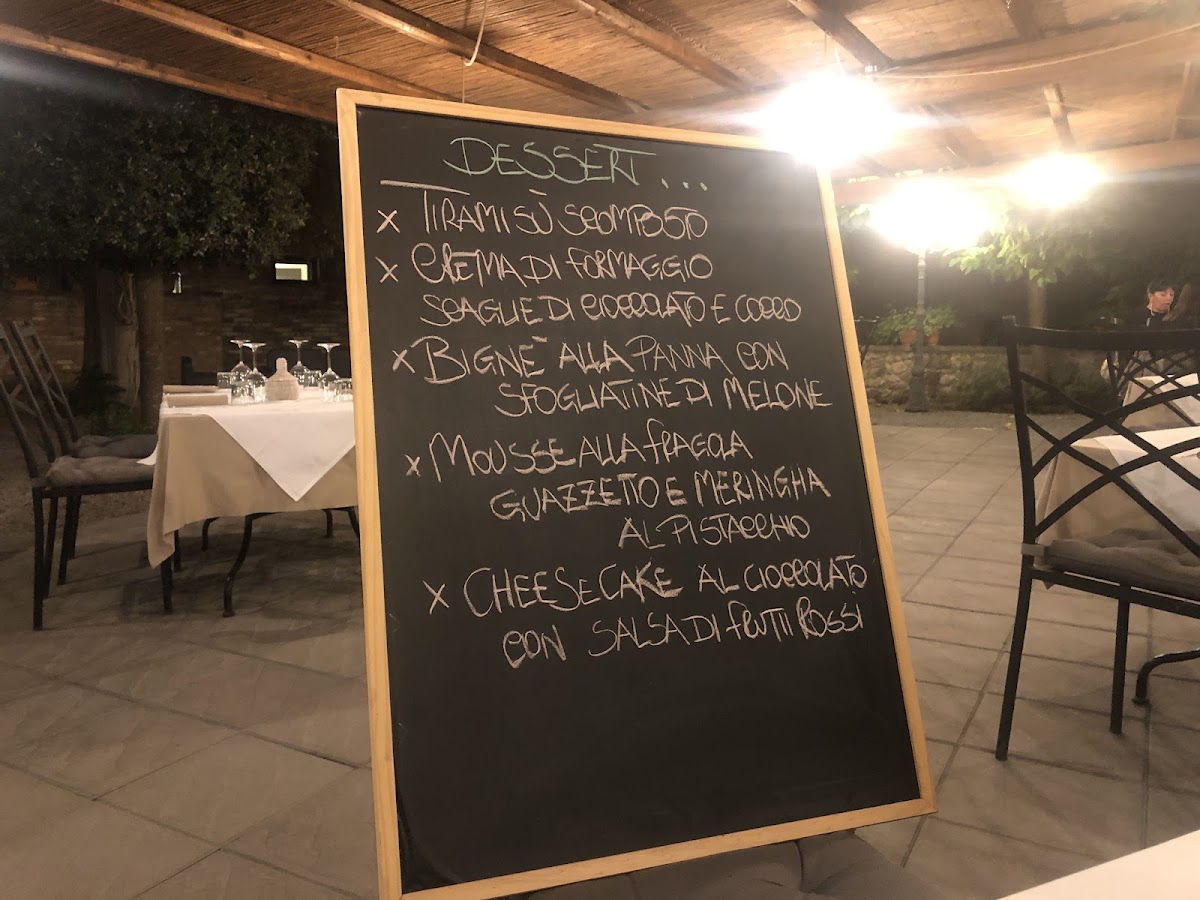 DESSERT...
x TIRAMISÙ SCOMPOSTO
x CREMA DI FORMAGGIO
SCAGLIE DI CIOCCOLATO E COCCO
x BIGNE' ALLA PANNA CON
SFOGLIATINE DI MELONE
x MOUSSE ALLA FRAGOLA
GUAZZETTO E MERINGHA
AL PISTACCHIO
x CHEESECAKE AL CIOCCOLATO
CON SALSA DI FRUTTI ROSSI